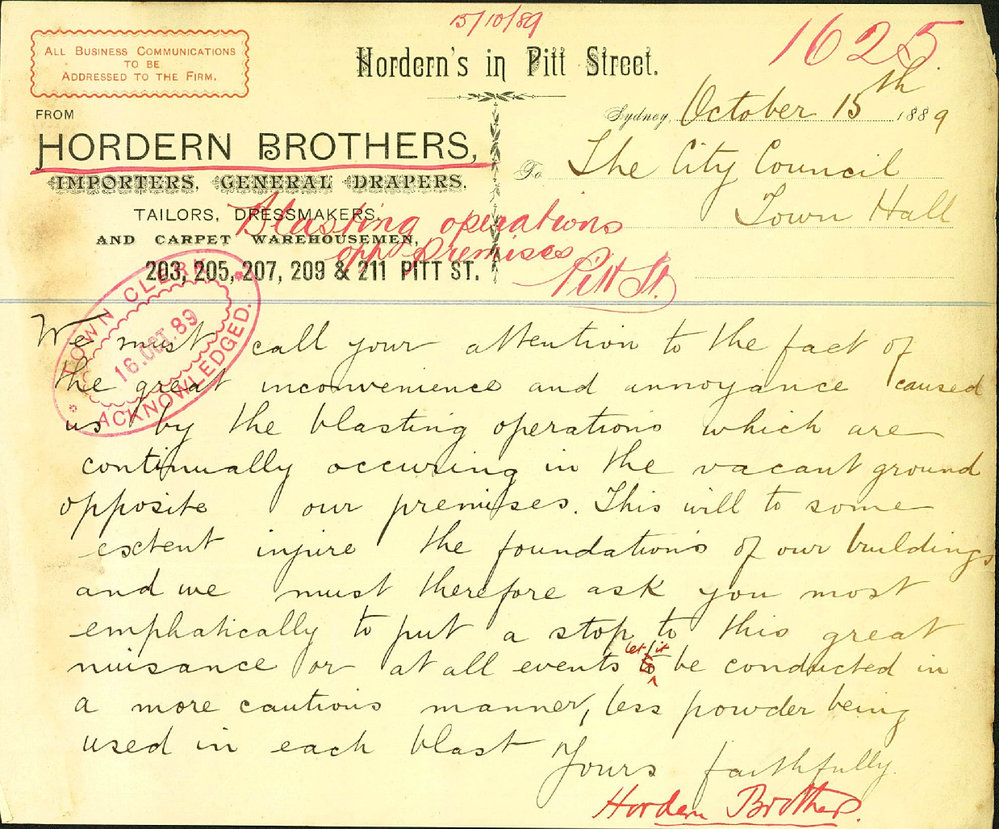 15/10/89
1625
ALL BUSINESS COMMUNICATIONS
TO BE
ADDRESSED TO THE FIRM.
Hordern's in Pitt Street.
FROM
HORDERN BROTHERS,
IMPORTERS, GENERAL DRAPERS.
TAILORS, DRESSMAKERS,
AND CARPET WAREHOUSEMEN,
203, 205, 207, 209 & 211 PITT ST.
Sydney, October 15th 1889
To The City Council
Town Hall
Blasting operations
opp premises
Pitt St.
TOWN CLERK
16 OCT. 89
ACKNOWLEDGED.
We must call your attention to the fact of
the great inconvenience and annoyance caused
us by the blasting operations which are
continually occuring in the vacant ground
opposite our premises. This will to some
extent injure the foundations of our buildings
and we must therefore ask you most
emphatically to put a stop to this great
nuisance or at all events let it be conducted in
a more cautious manner, less powder being
used in each blast
Yours faithfully.
Hordern Brothers.